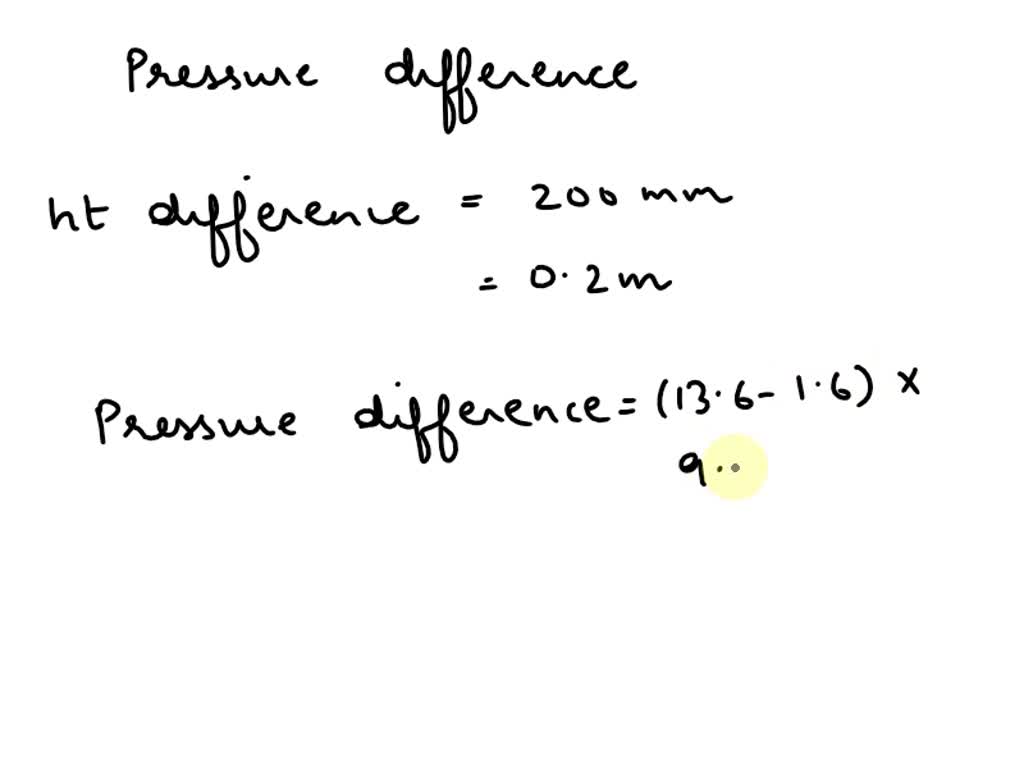 Pressure difference
ht difference = 200 mm
= 0.2 m
Pressure difference = (13.6 - 1.6) ×
9.